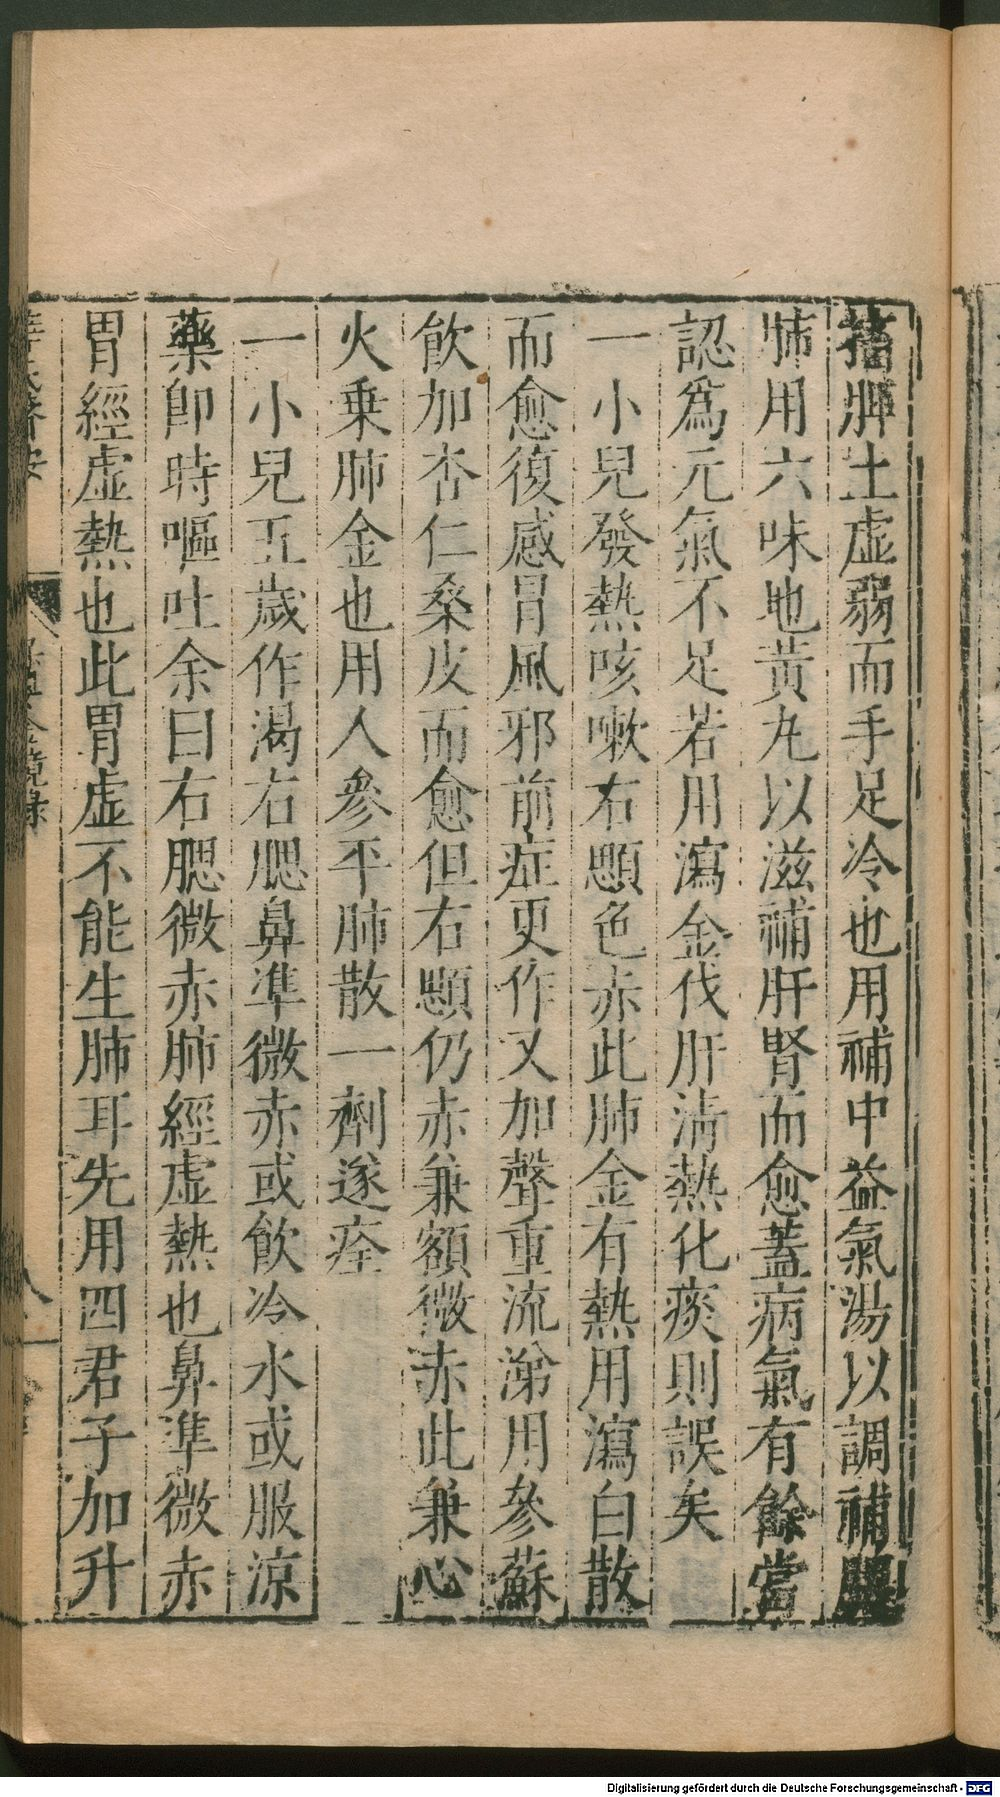 搐脾土虚弱而手足冷也用補中益氣湯以調補脾
肺用六味地黄九以滋補肝腎而愈蓋病氣有餘當
認爲元氣不足若用瀉金伐肝淸熱化痰則誤矣
一小兒發熱咳嗽右顋色赤此肺金有熱用瀉白散
而愈復感冒風邪前症更作又加聲重流涕用參蘇
飲加杏仁桑皮而愈但右顋仍赤兼額微赤此兼心
火乗肺金也用人參平肺散一劑遂痊
一小兒五歲作渴右腮鼻準微赤或飲冷水或服涼
藥卽時嘔吐余曰右腮微赤肺經虚熱也鼻準微赤
胃經虚熱也此胃虚不能生肺耳先用四君子加升
Digitalisierung gefördert durch die Deutsche Forschungsgemeinschaft - DFG